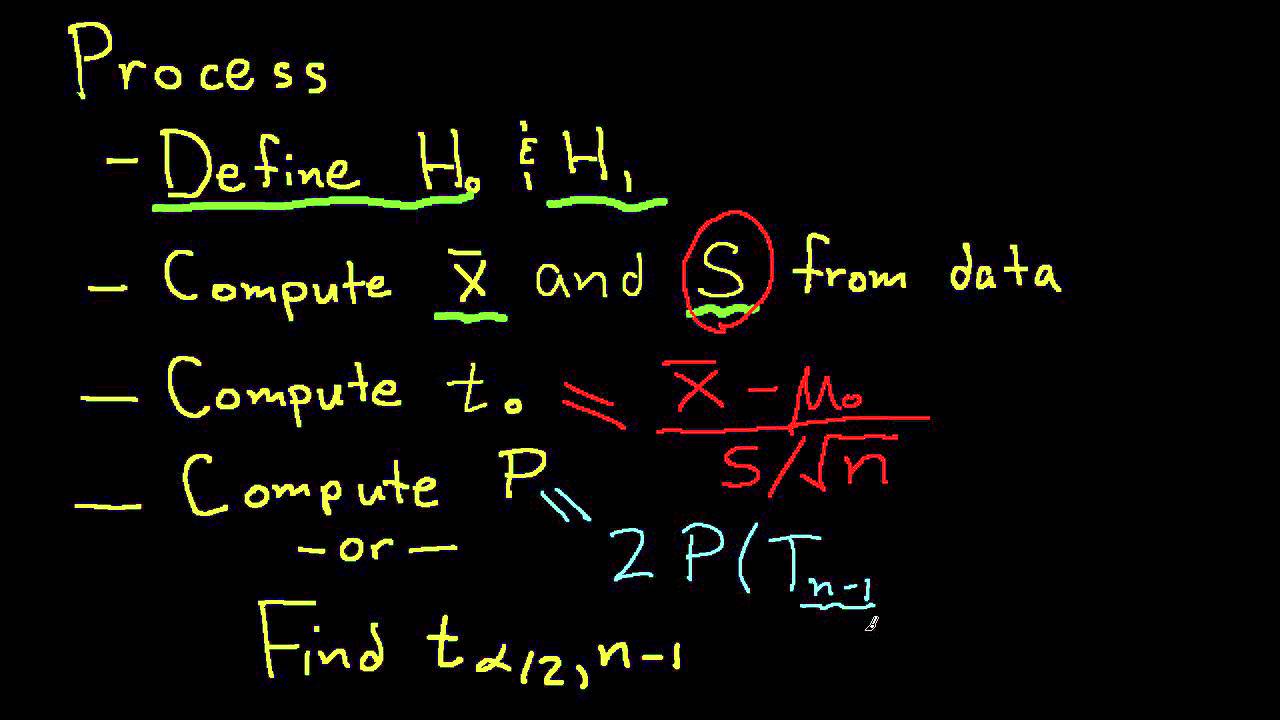 Process
- Define H₀ & H₁
- Compute X̅ and S from data
- Compute t₀ = (X̅ - μ₀) / (S/√n)
- Compute P = 2 P(Tₙ₋₁
- or -
Find t α/2, n-1